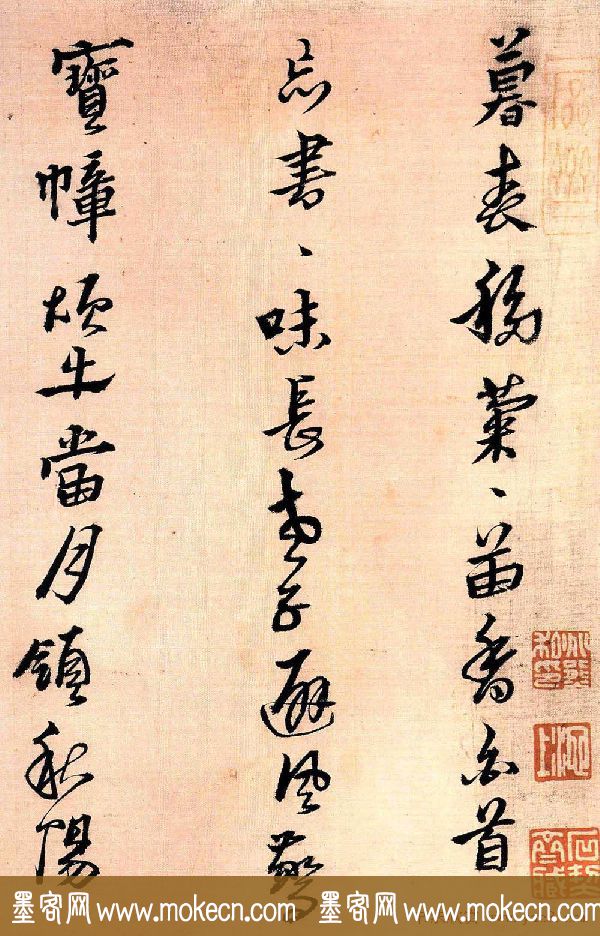 暮春移菊、苗香白首
書、味長老子避風驚
寶幛煩當月領秋陽
墨客网 www.mokecn.com 墨客网 www.mokecn.com